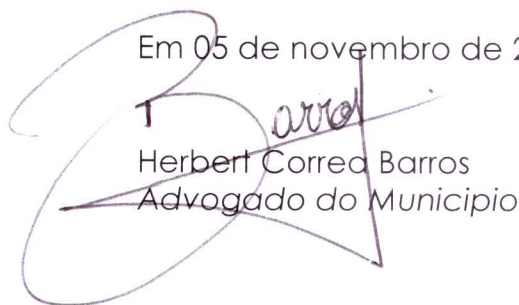 Em 05 de novembro de 2
Barros
Herbert Correa Barros
Advogado do Municipio